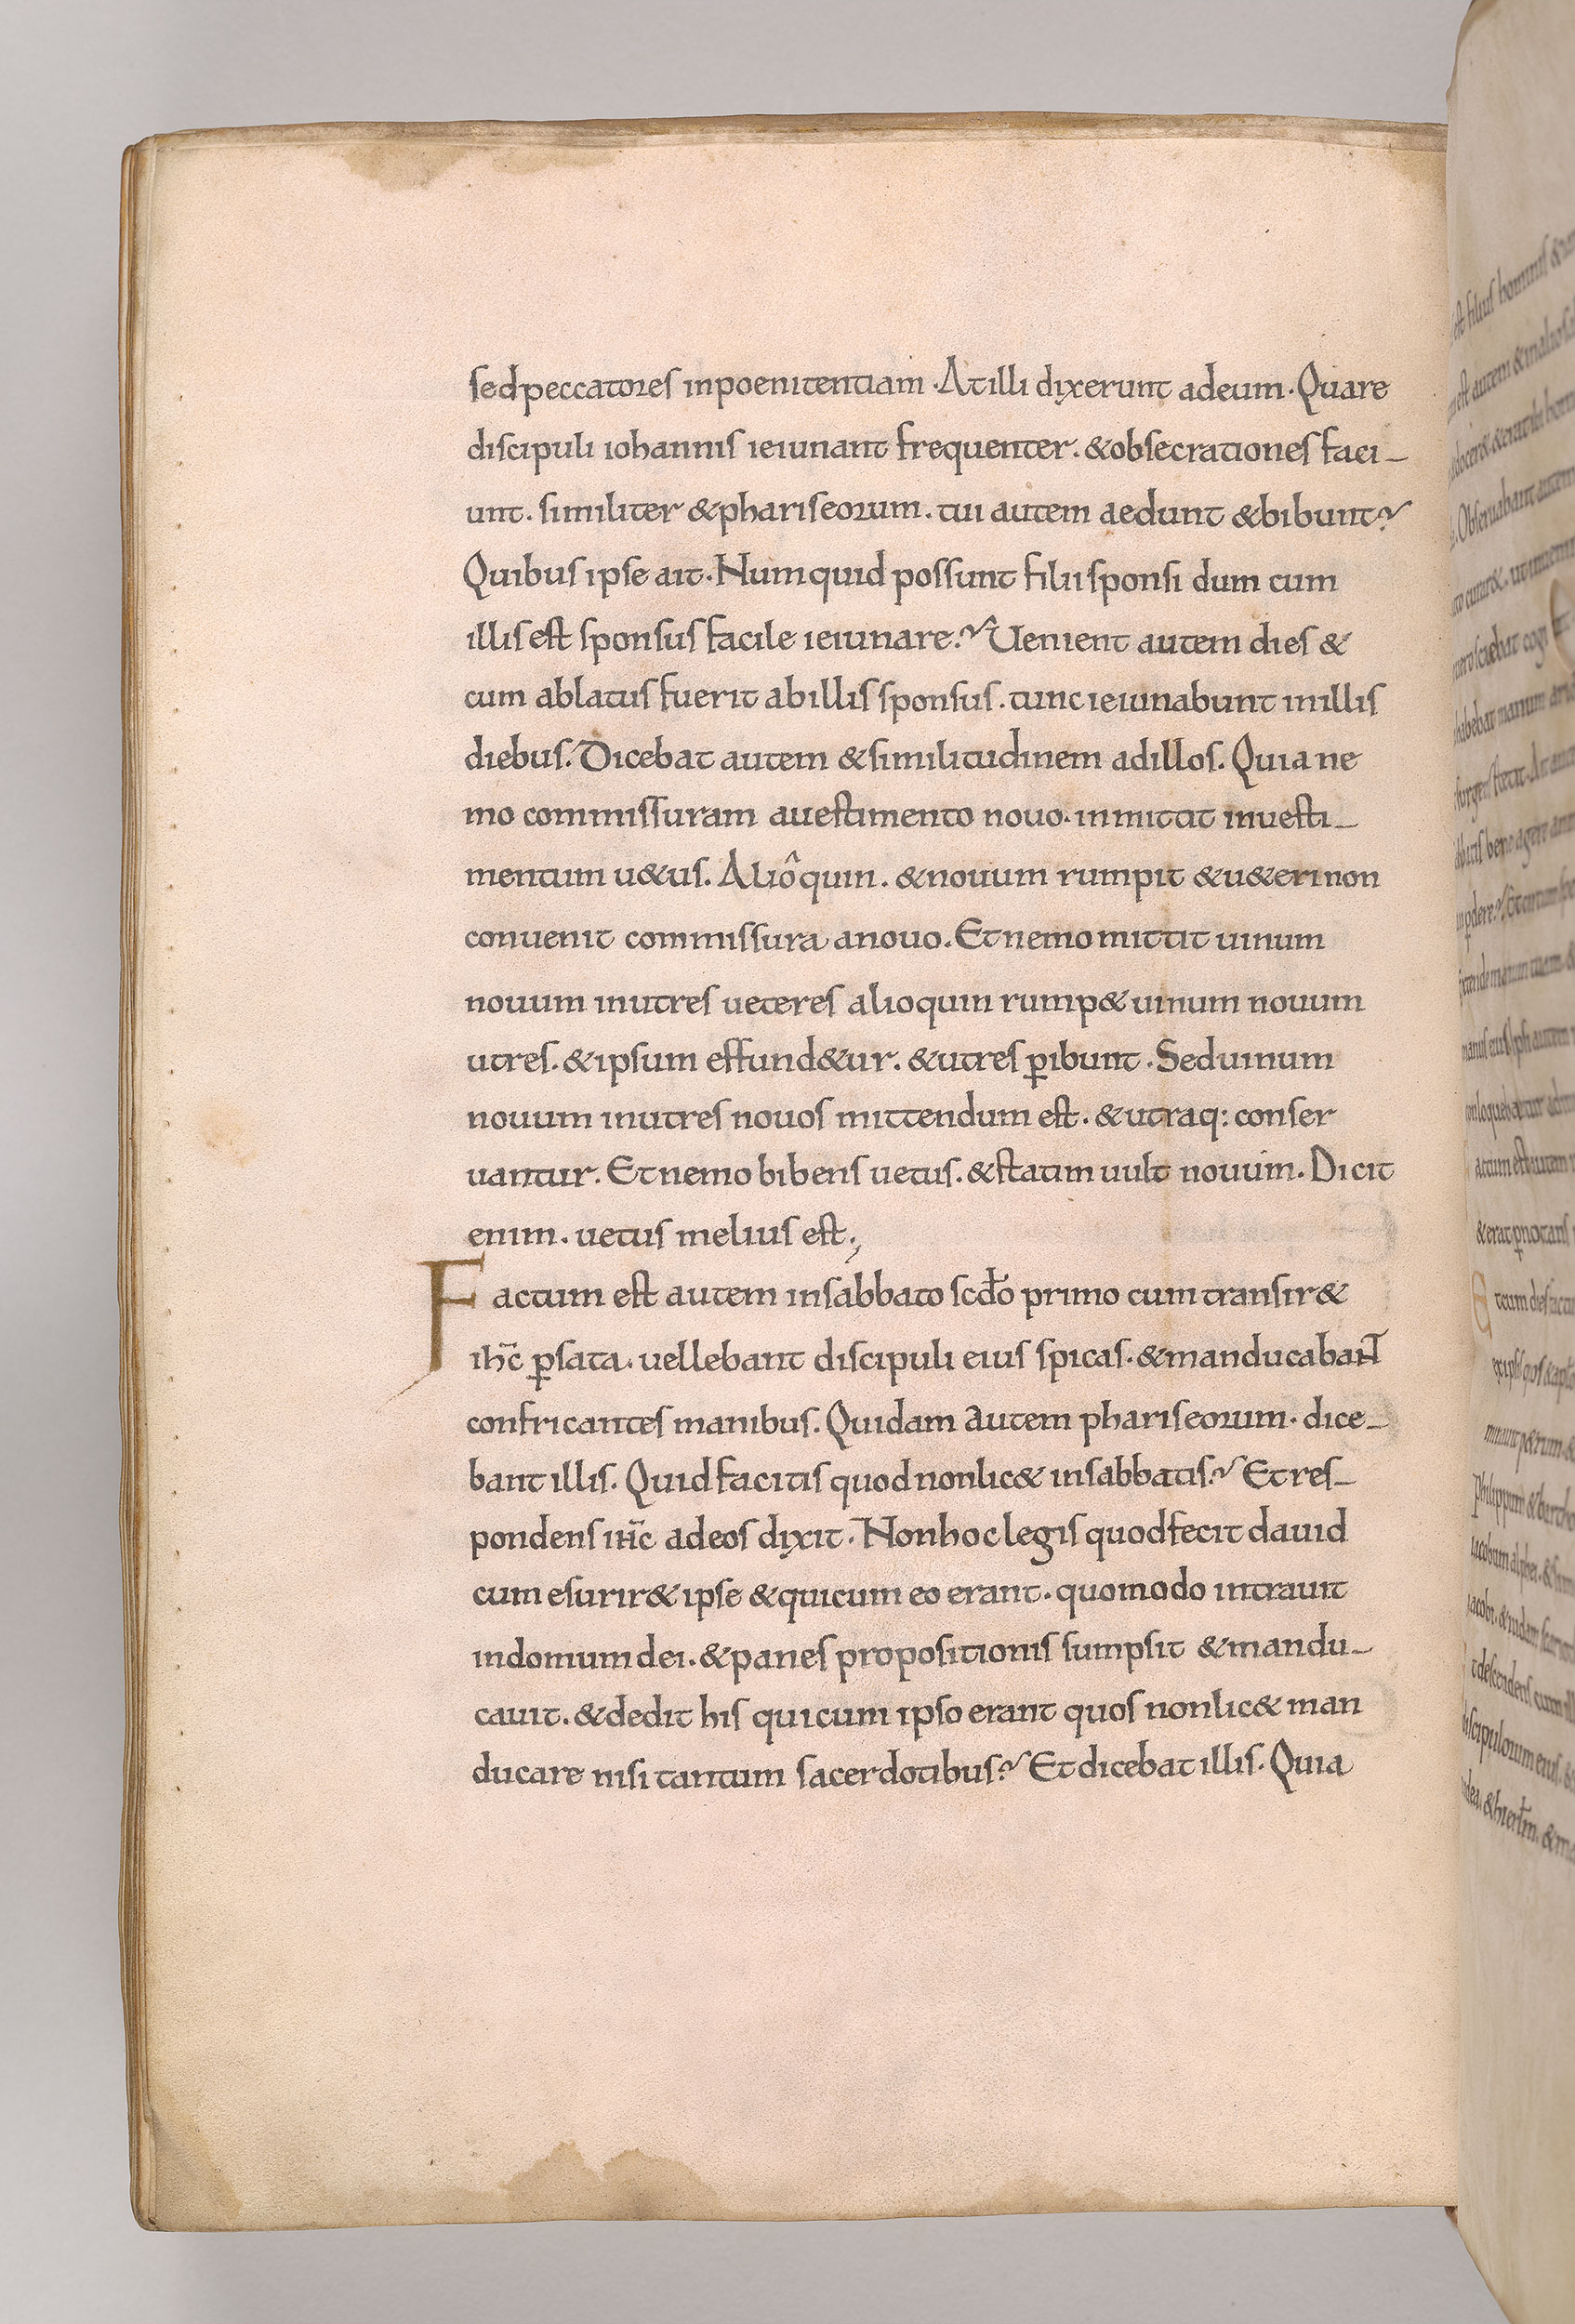 sedpeccatores inpoenitentiam · Atilli dixerunt adeum · Quare
discipuli iohannis ieiunant frequenter . &obsecrationes faci_
unt . similiter &phariseorum . tui autem aedunt &bibunt?
Quibus ipse ait · Numquid possunt filii sponsi dum cum
illis est sponsus facile ieiunare? Uenient autem dies &
cum ablatus fuerit abillis sponsus . tunc ieiunabunt inillis
diebus . Dicebat autem &similitudinem adillos . Quia ne
mo commissuram auestimento nouo · inmittit inuesti_
mentum u&us . Aliôquin . &nouum rumpit &u&eri non
conuenit commissura anouo . Et nemo mittit uinum
nouum inutres ueteres alioquin rump& uinum nouum
utres . &ipsum effund&ur . &utres p̱ibunt . Seduinum
nouum inutres nouos mittendum est . &utraq: conser
uantur . Et nemo bibens uetus . &statim uult nouum . Dicit
enim . uetus melius est ;
Factum est autem insabbato scd̄o primo cum transir&
ih̄c p̱sata . uellebant discipuli eius spicas · &manducaban̄t
confricantes manibus . Quidam autem phariseorum · dice_
bant illis . Quid facitis quod nonlic& insabbatis? Et res_
pondens ih̄c adeos dixit . Nonhoc legis quod fecit dauid
cum esurir& ipse &quicum eo erant . quomodo intrauit
indomum dei . &panes propositionis sumpsit &mandu_
cauit . &dedit his quicum ipso erant quos nonlic& man
ducare nisi tantum sacerdotibus? Et dicebat illis . Quia